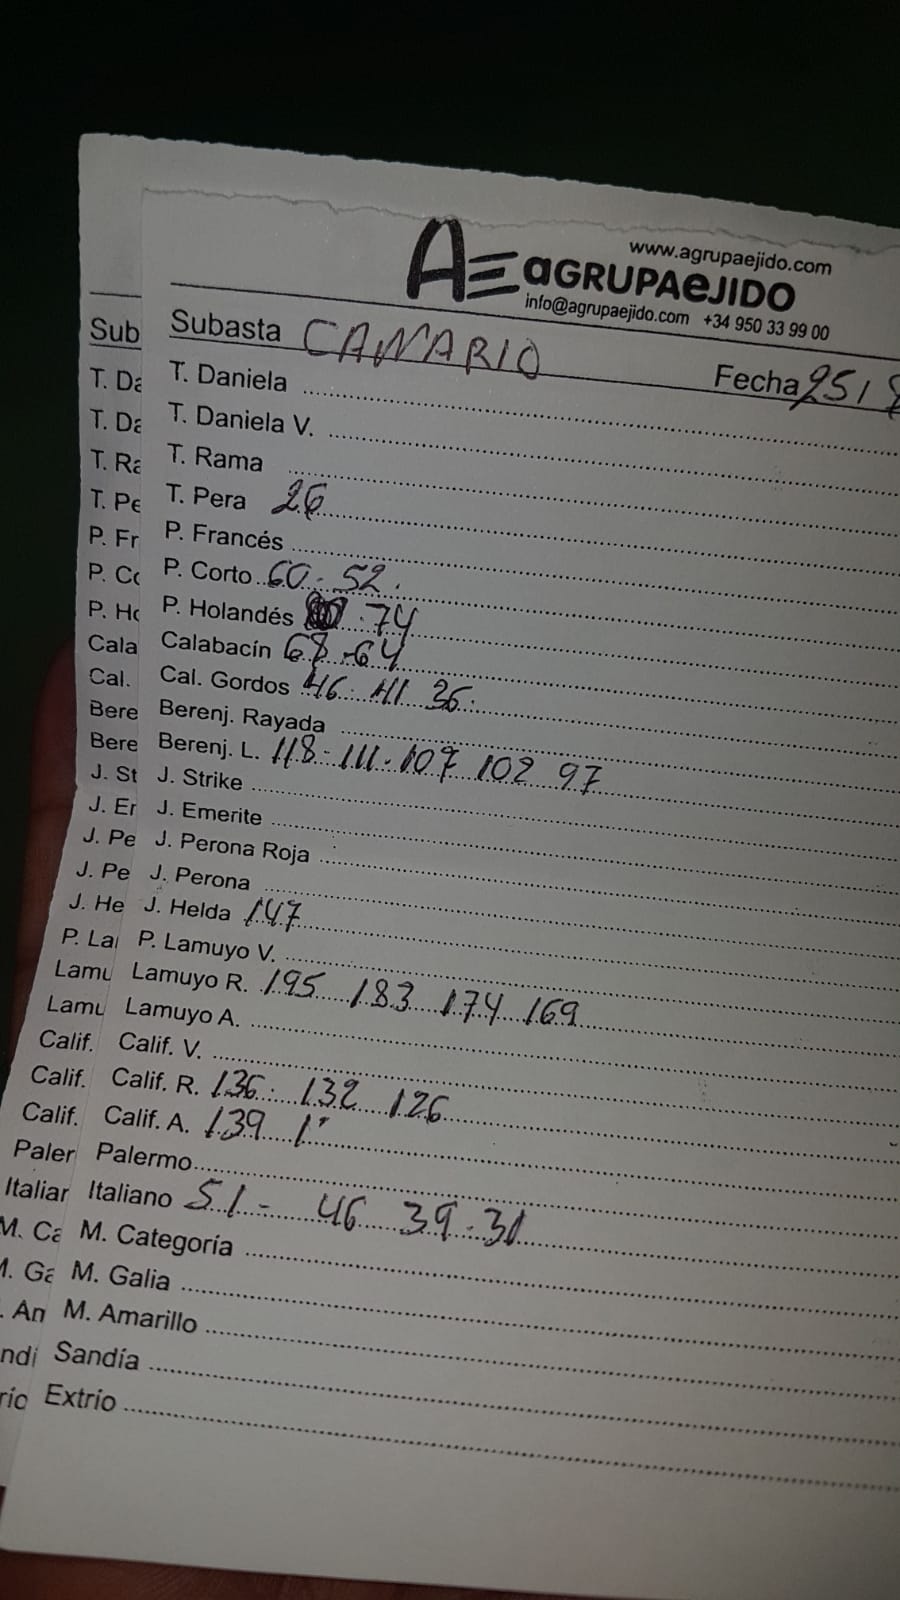 www.agrupaejido.com
AE aGRUPAeJIDO
info@agrupaejido.com +34 950 33 99 00
Sub Subasta CANARIO Fecha 25/
T. Da T. Daniela
T. Da T. Daniela V.
T. Ra T. Rama
T. Pe T. Pera 26
P. Fr P. Francés
P. Co P. Corto 60. 52.
P. Ho P. Holandés . 74
Cala Calabacín 68 - 64
Cal. Cal. Gordos 46. 41 36.
Bere Berenj. Rayada
Bere Berenj. L. 118 - 111. 107 102 97
J. St J. Strike
J. Er J. Emerite
J. Pe J. Perona Roja
J. Pe J. Perona
J. He J. Helda 147
P. La P. Lamuyo V.
Lamu Lamuyo R. 195 183 174 169
Lamu Lamuyo A.
Calif. Calif. V.
Calif. Calif. R. 136. 132 126
Calif. Calif. A. 139 1"
Paler Palermo
Italiar Italiano 51 - 46 39. 31
M. Ca M. Categoría
M. Ga M. Galia
. Am M. Amarillo
ndí Sandía
río Extrío